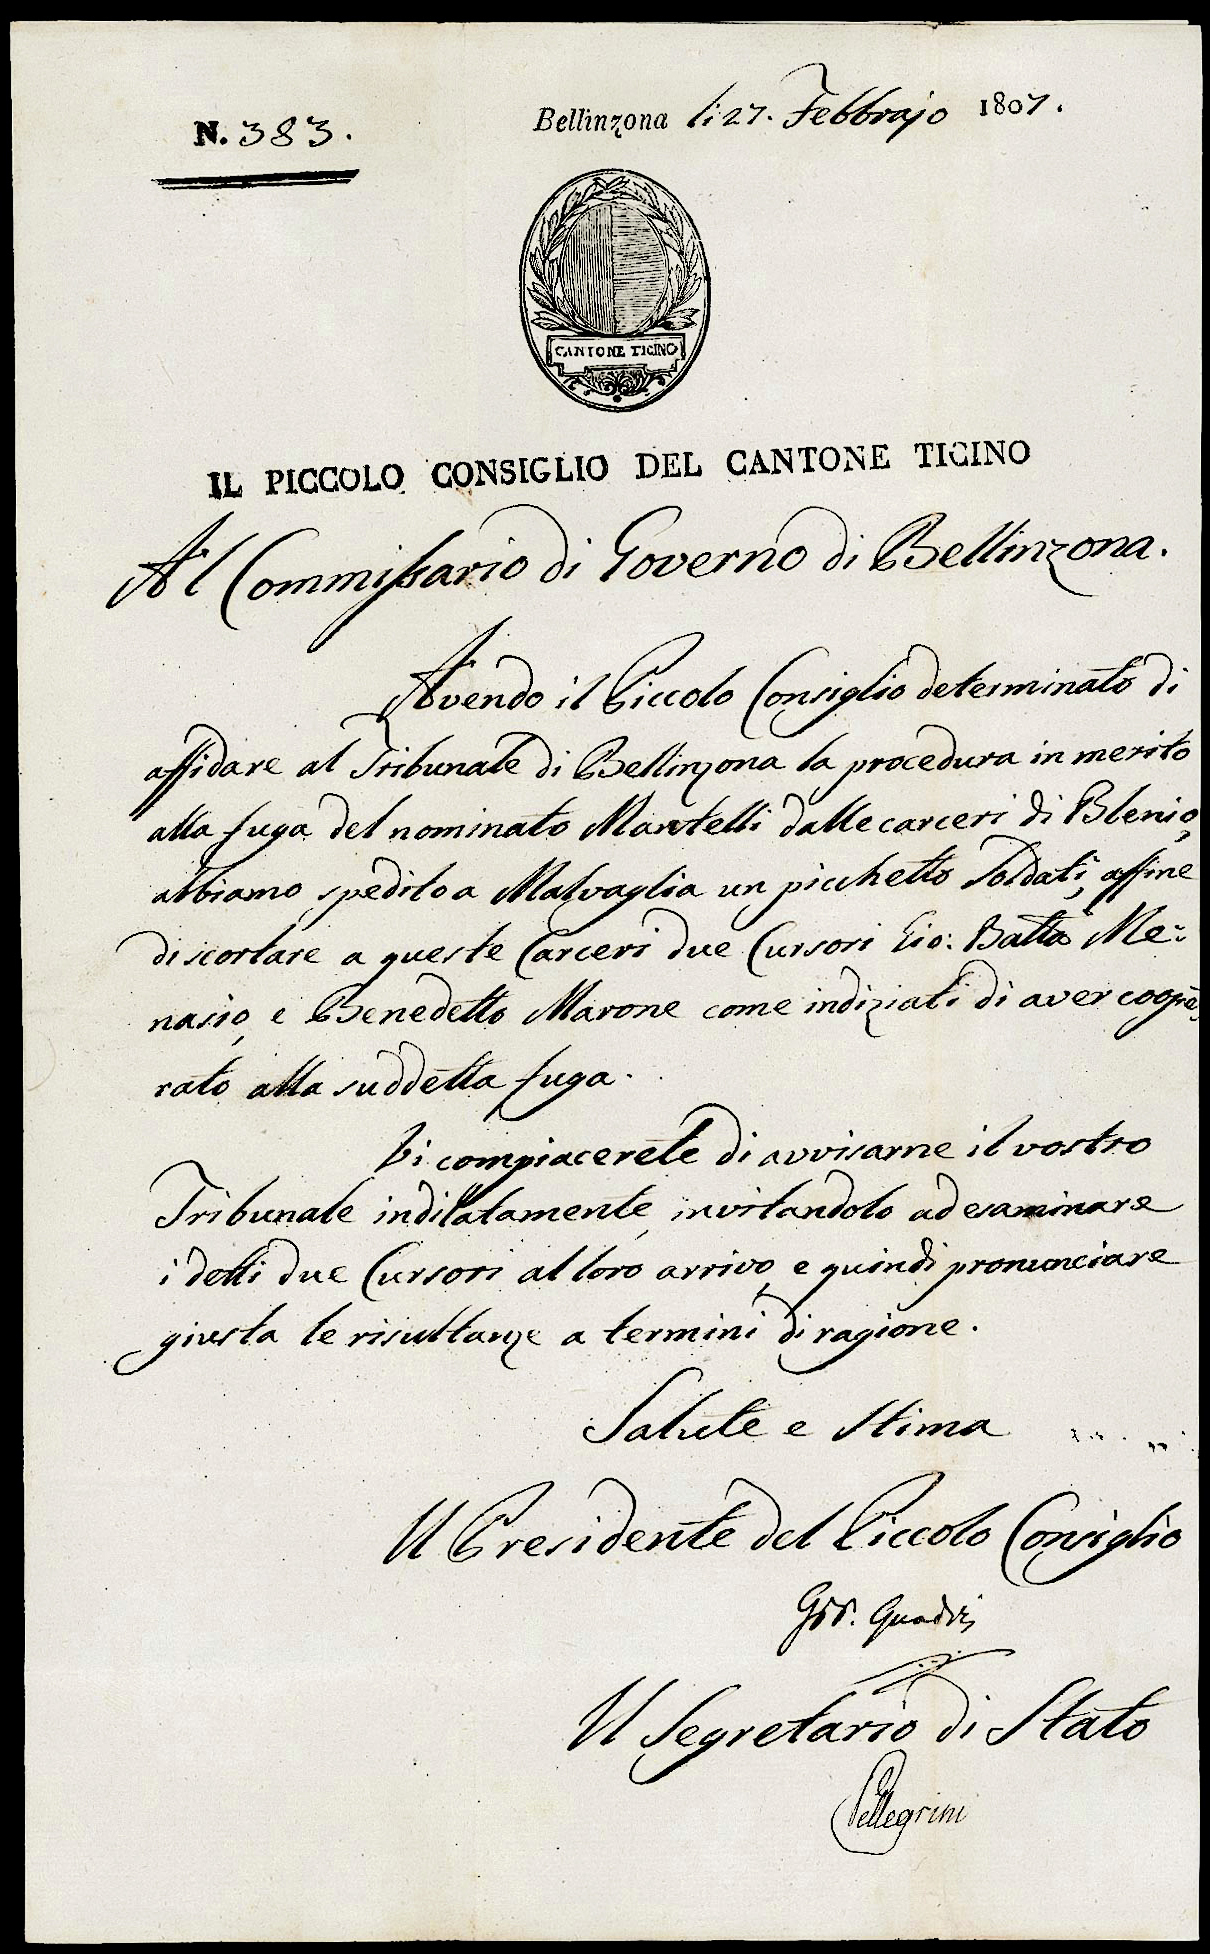 N. 383.
Bellinzona li 27. Febbrajo 1807.
CANTONE TICINO
IL PICCOLO CONSIGLIO DEL CANTONE TICINO
Al Commissario di Governo di Bellinzona.
Avendo il Piccolo Consiglio determinato di
affidare al Tribunale di Bellinzona la procedura in merito
alla fuga del nominato Mantelli dalle carceri di Blenio,
abbiamo spedito a Malvaglia un picchetto Soldati, affine
di scortare a queste Carceri due Cursori Gio: Batta Me-
nasio, e Benedetto Marone come indiziati di aver coope-
rato alla suddetta fuga.
Vi compiacerete di avvisarne il vostro
Tribunale indilatamente, invitandolo ad esaminare
i detti due Cursori al loro arrivo, e quindi pronunciare
giusta le risultanze a termini di ragione.
Salute e Stima
Il Presidente del Piccolo Consiglio
Quadri
Il Segretario di Stato
Pellegrini